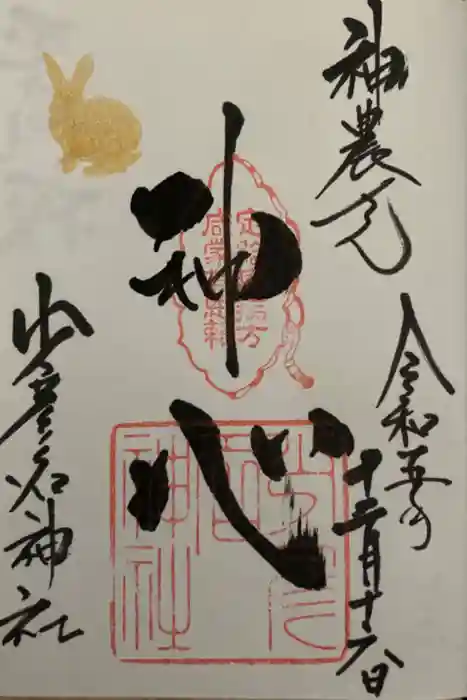 神農
神心
令和五年
十二月十六日
少彦名神社
少彦名神社